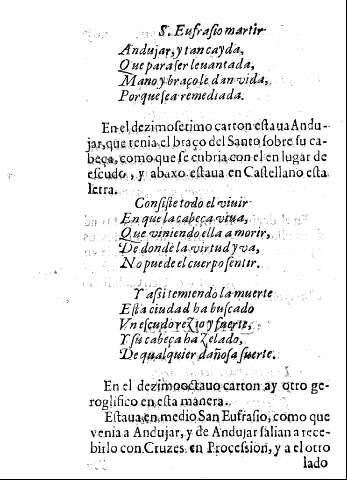 S. Eufrasio martir
Andujar, y tan cayda,
Que para ser leuantada,
Mano y braço le dan vida,
Porque sea remediada.
En el dezimosetimo carton estaua Andu-
jar, que tenia el braço del Santo sobre su ca-
beça, como que se cubria con el en lugar de
escudo, y abaxo estaua en Castellano esta
letra.
Consiste todo el viuir
En que la cabeça viua,
Que viniendo ella a morir,
De donde la virtud yua,
No puede el cuerpo sentir.
Y assi temiendo la muerte
Esta ciudad ha buscado
Vn escudo rezio y fuerte,
Y su cabeça ha zelado,
De qualquier dañosa suerte.
En el dezimooctauo carton ay otro ge-
roglifico en esta manera.
Estaua en medio San Eufrasio, como que
venia a Andujar, y de Andujar salian a rece-
birlo con Cruzes en Procession, y a el otro
lado